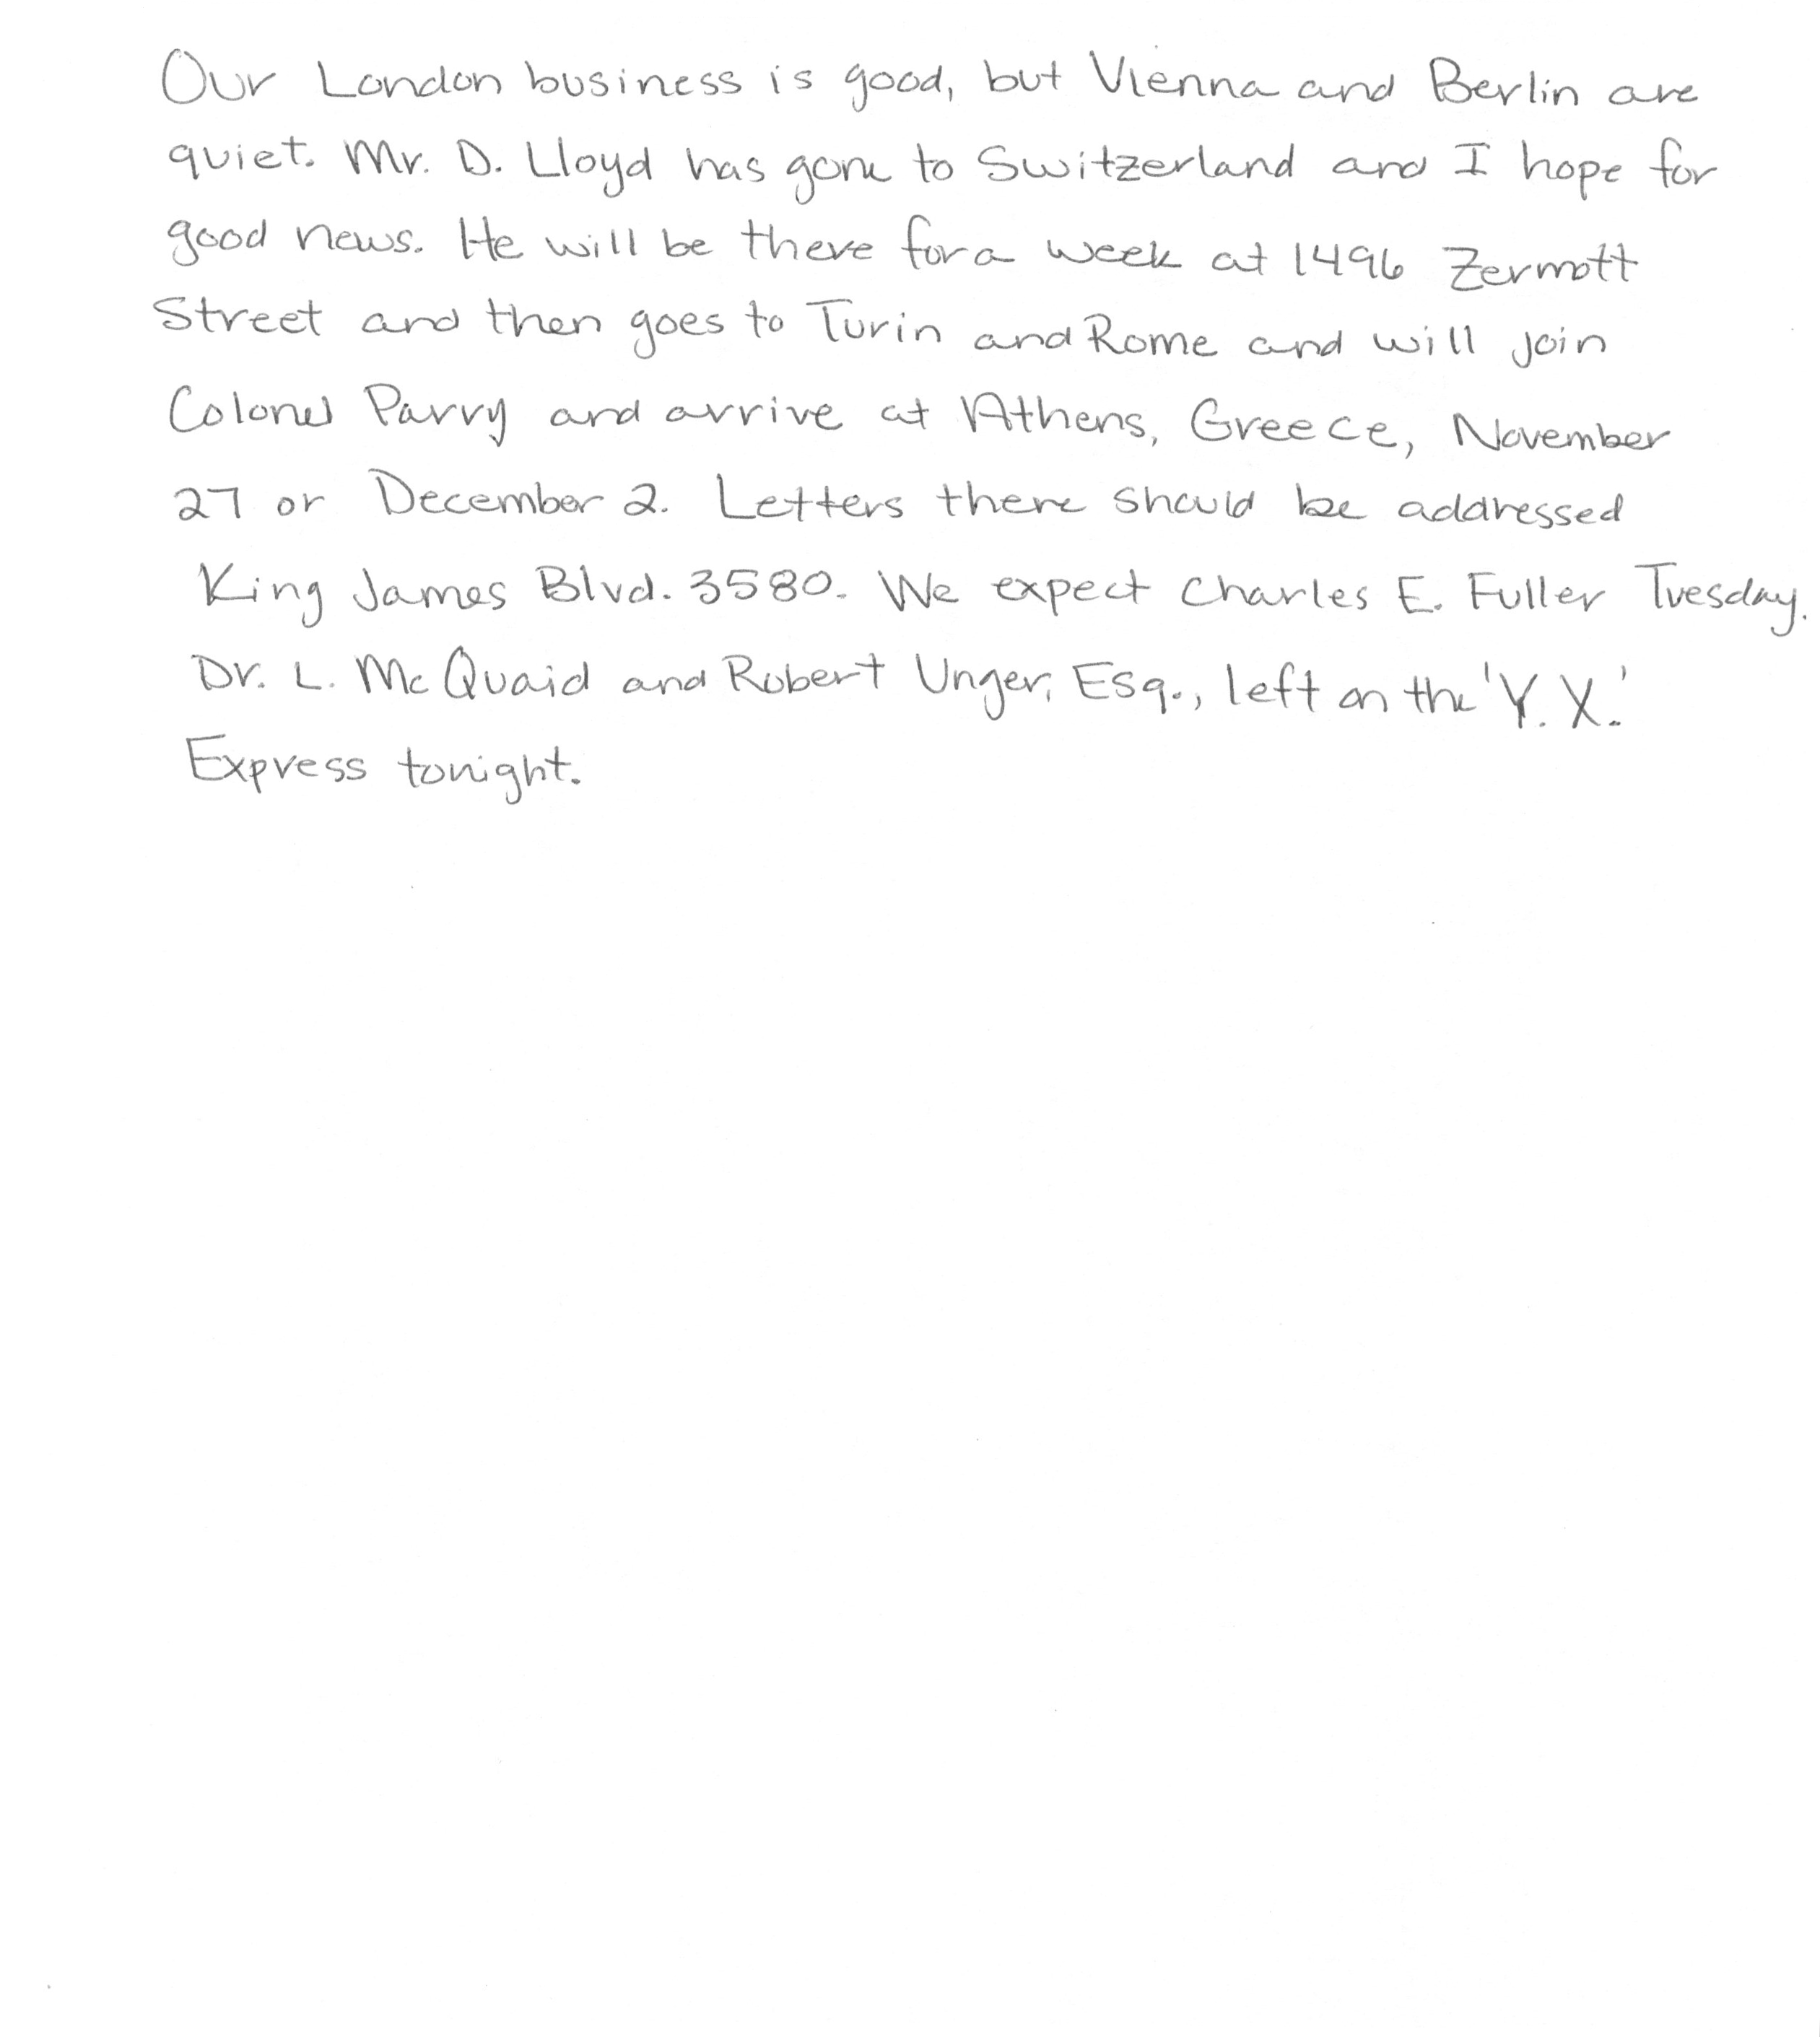 Our London business is good, but Vienna and Berlin are
quiet. Mr. D. Lloyd has gone to Switzerland and I hope for
good news. He will be there for a week at 1496 Zermott
Street and then goes to Turin and Rome and will join
Colonel Parry and arrive at Athens, Greece, November
27 or December 2. Letters there should be addressed
King James Blvd. 3580. We expect Charles E. Fuller Tuesday.
Dr. L. McQuaid and Robert Unger, Esq., left on the 'Y.X.'
Express tonight.